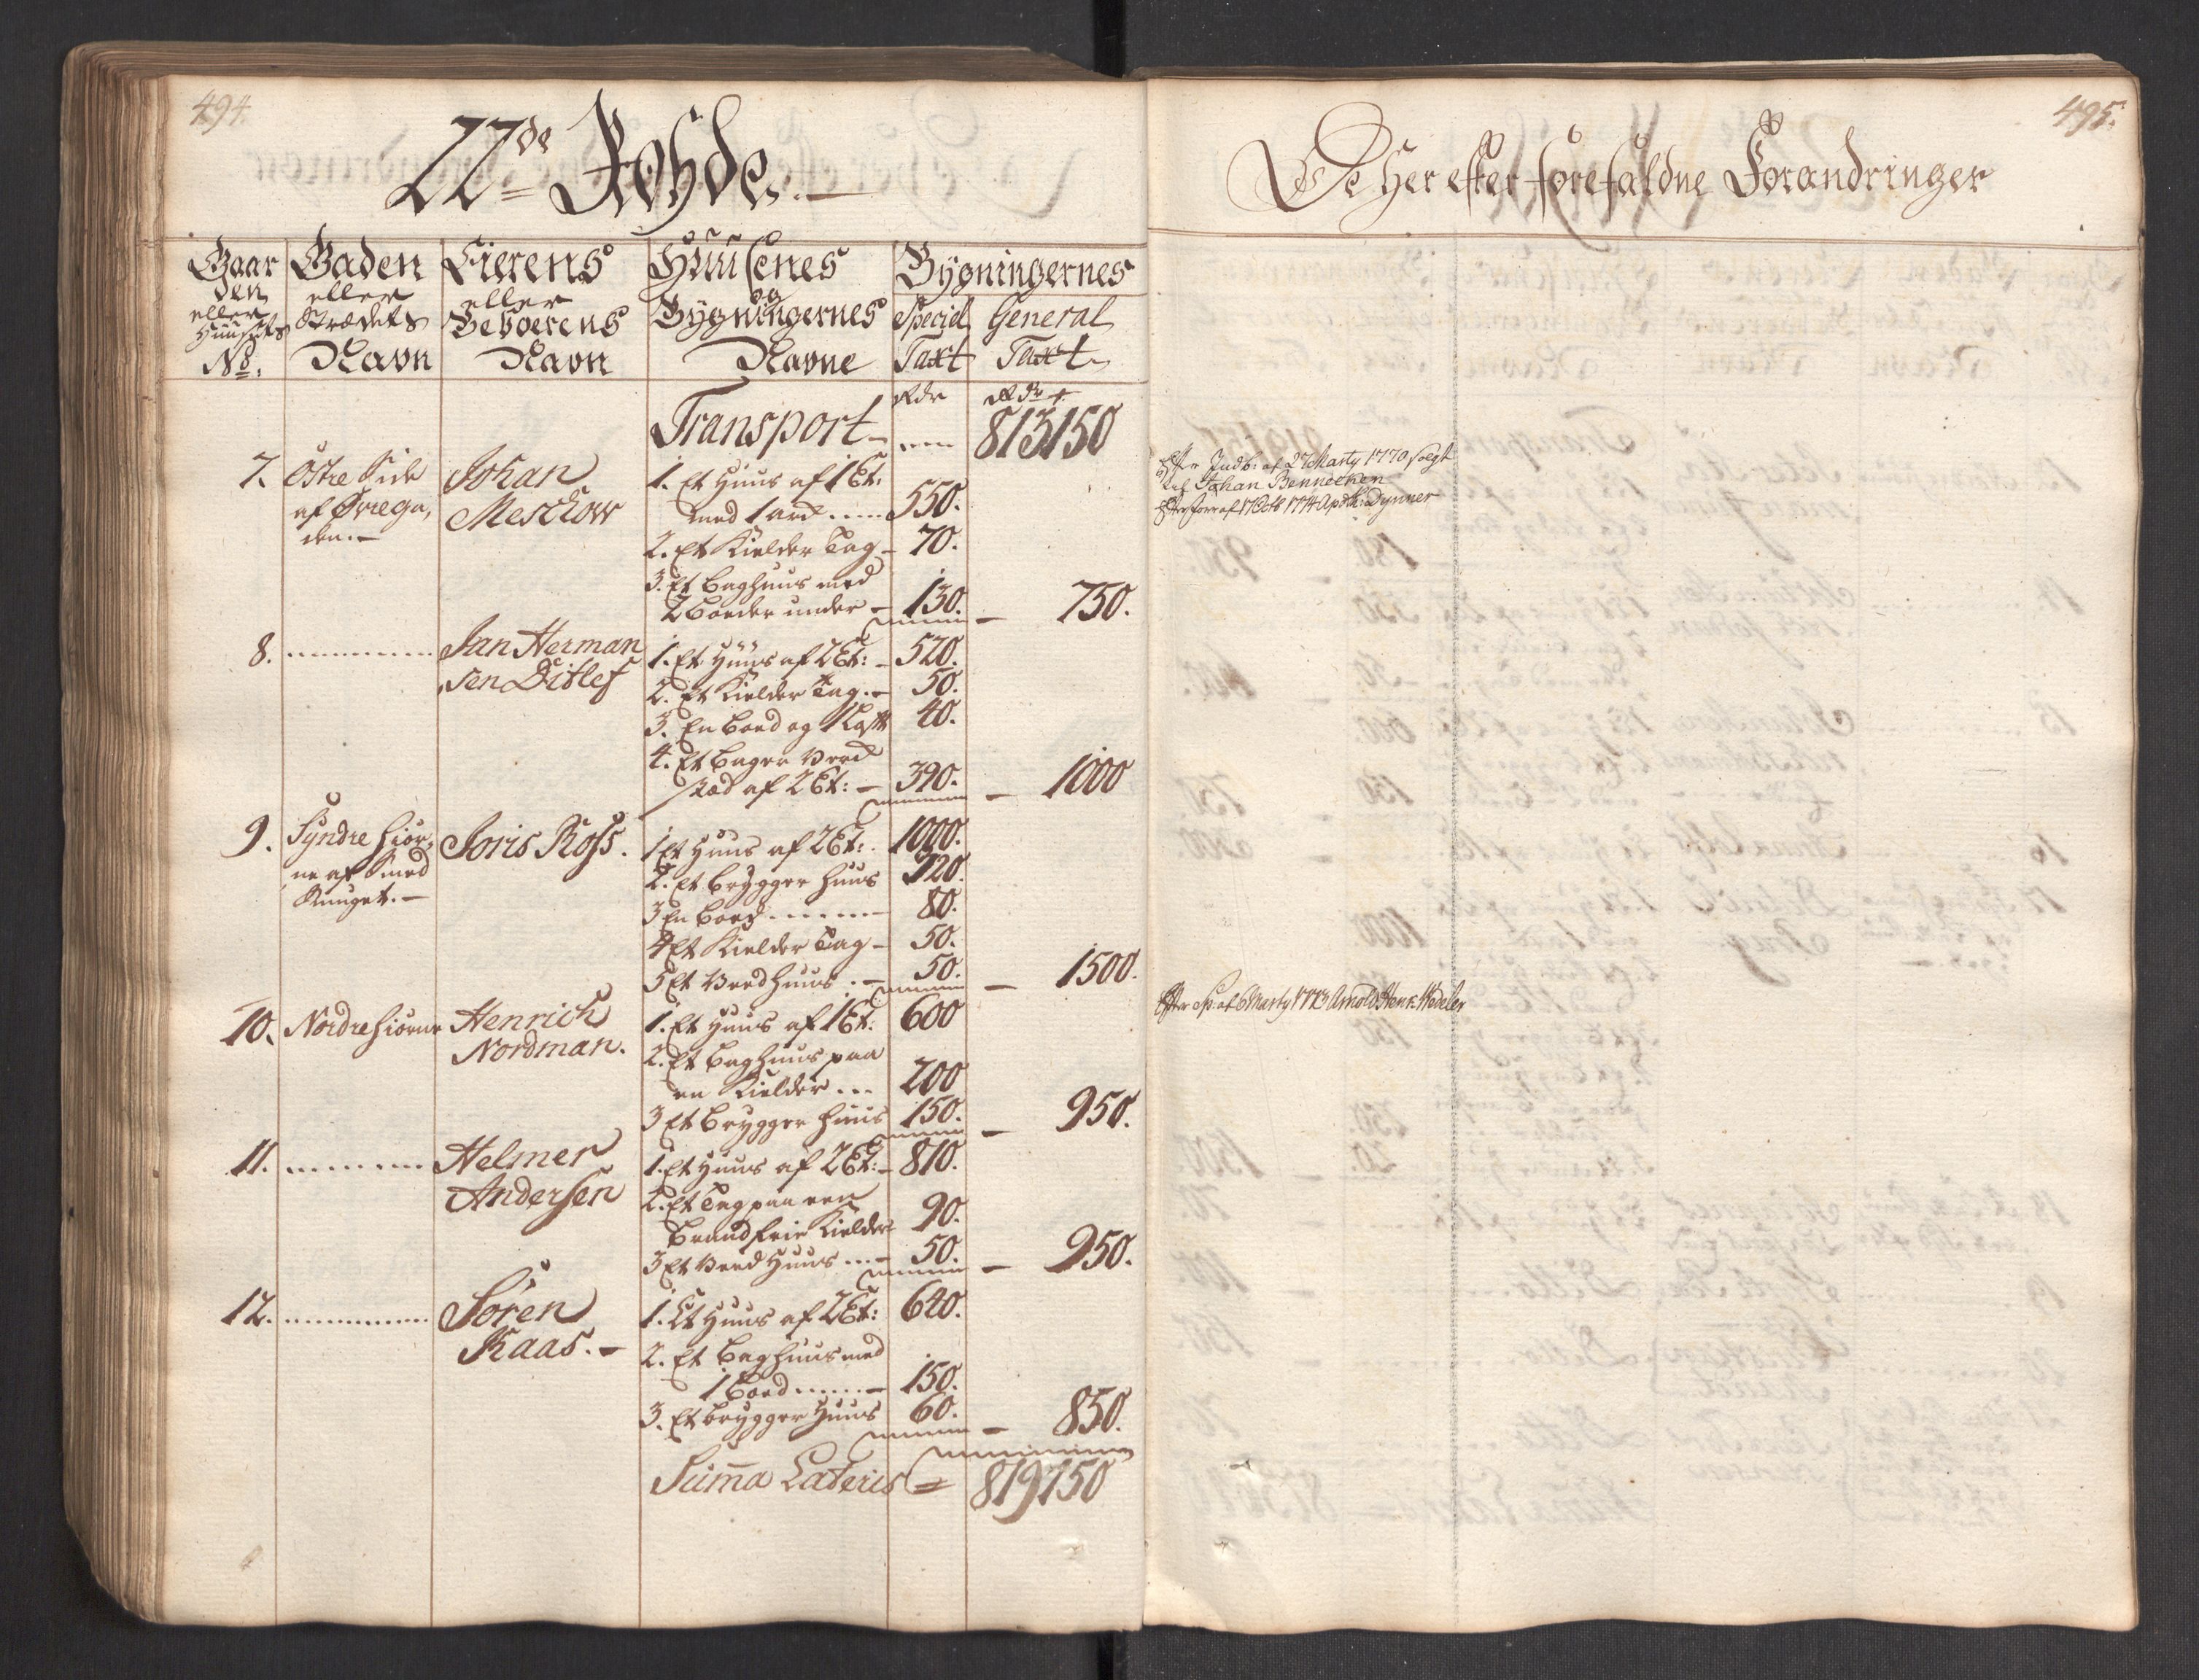 494.
22de Rohde.
Gaar Gaden Eierens Huusenes Bygningernes
den eller eller og
eller Strædets Beboerens Bygningernes Special General
Huusets
No. Navn Navn Navne Taxt Taxt
Rdr Rdr
Transport 813150
7. Østre Side Johan 1. Et Huus af 1 Et:
af Øvrega, Meschow med 1 ard 550.
den. 2. Et Kielder Tag 70.
3. Et Baghuus med
2 Boeder under 130. 750.
8. Jan Herman 1. Et Huus af 2 Et: 520.
sen Ditlef 2. Et Kielder Tag. 50.
3. En Boed og 40.
4. Et Bager Værd
stæd af 2 Et: 390. 1000
9. Syndre Hiør, Joris Ross. 1 Et Huus af 2 Et: 1000.
ne af Smed 2. Et Brygger Huus 320.
Smuget. 3 En Boed 80.
4 Et Kielder Tag 50.
5 Et Vedhuus 50. 1500.
10. Nordre Hiørne Henrich 1. Et Huus af 1 Et: 600
Nordman. 2. Et Baghuus paa
en Kielder 200
3 Et Brygger Huus 150. 950.
11. Helmer 1. Et Huus af 2 Et: 810.
Andersen 2. Et Tag paa een
Brandfrie Kielder 90.
3 Et Ved Huus 50. 950.
12. Søren 1. Et Huus af 2 Et: 640.
Kaas. 2. Et Baghuus med
1 Boed 150.
3. Et Brygger Huus 60. 850.
Summa Lateris 819150
495.
De Her efter forefaldne Forandringer
Efter Indb: af 27 Marty 1770 solgt
til Johan Bennechen
Efter forr af 17 Octb 1774 Apoth: Dynner
Efter Sp: af 6 Marty 1773 Arnold Henr: Wedeler